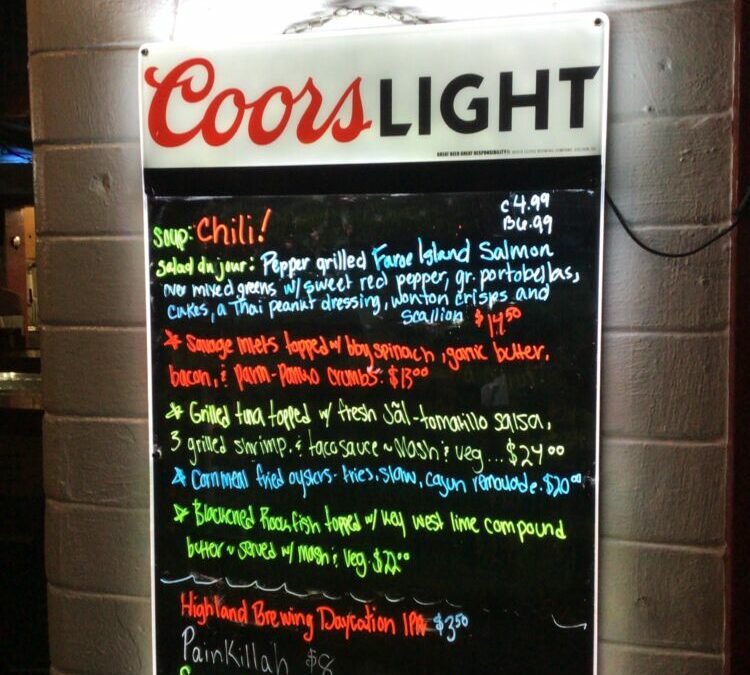 Coors LIGHT
GREAT BEER GREAT RESPONSIBILITY®
C 4.99
Soup: Chili! B 6.99
Salad du jour: Pepper grilled Faroe Island Salmon
over mixed greens w/ sweet red pepper, gr. portobellas,
cukes, a Thai peanut dressing, wonton crisps and
scallion $14.50
topped w/ bby spinach, garlic butter,
bacon, & parm-panko crumbs. $13.00
Grilled tuna topped w/ fresh tomatillo salsa,
3 grilled shrimp, & taco sauce ~ Mash & veg... $24.00
Cornmeal fried oysters - fries, slaw, cajun remoulade. $20.00
Blackened Rockfish topped w/ key west lime compound
butter ~ served w/ mash & veg. $22.00
Highland Brewing Daycation IPA $3.50
PainKillah $8